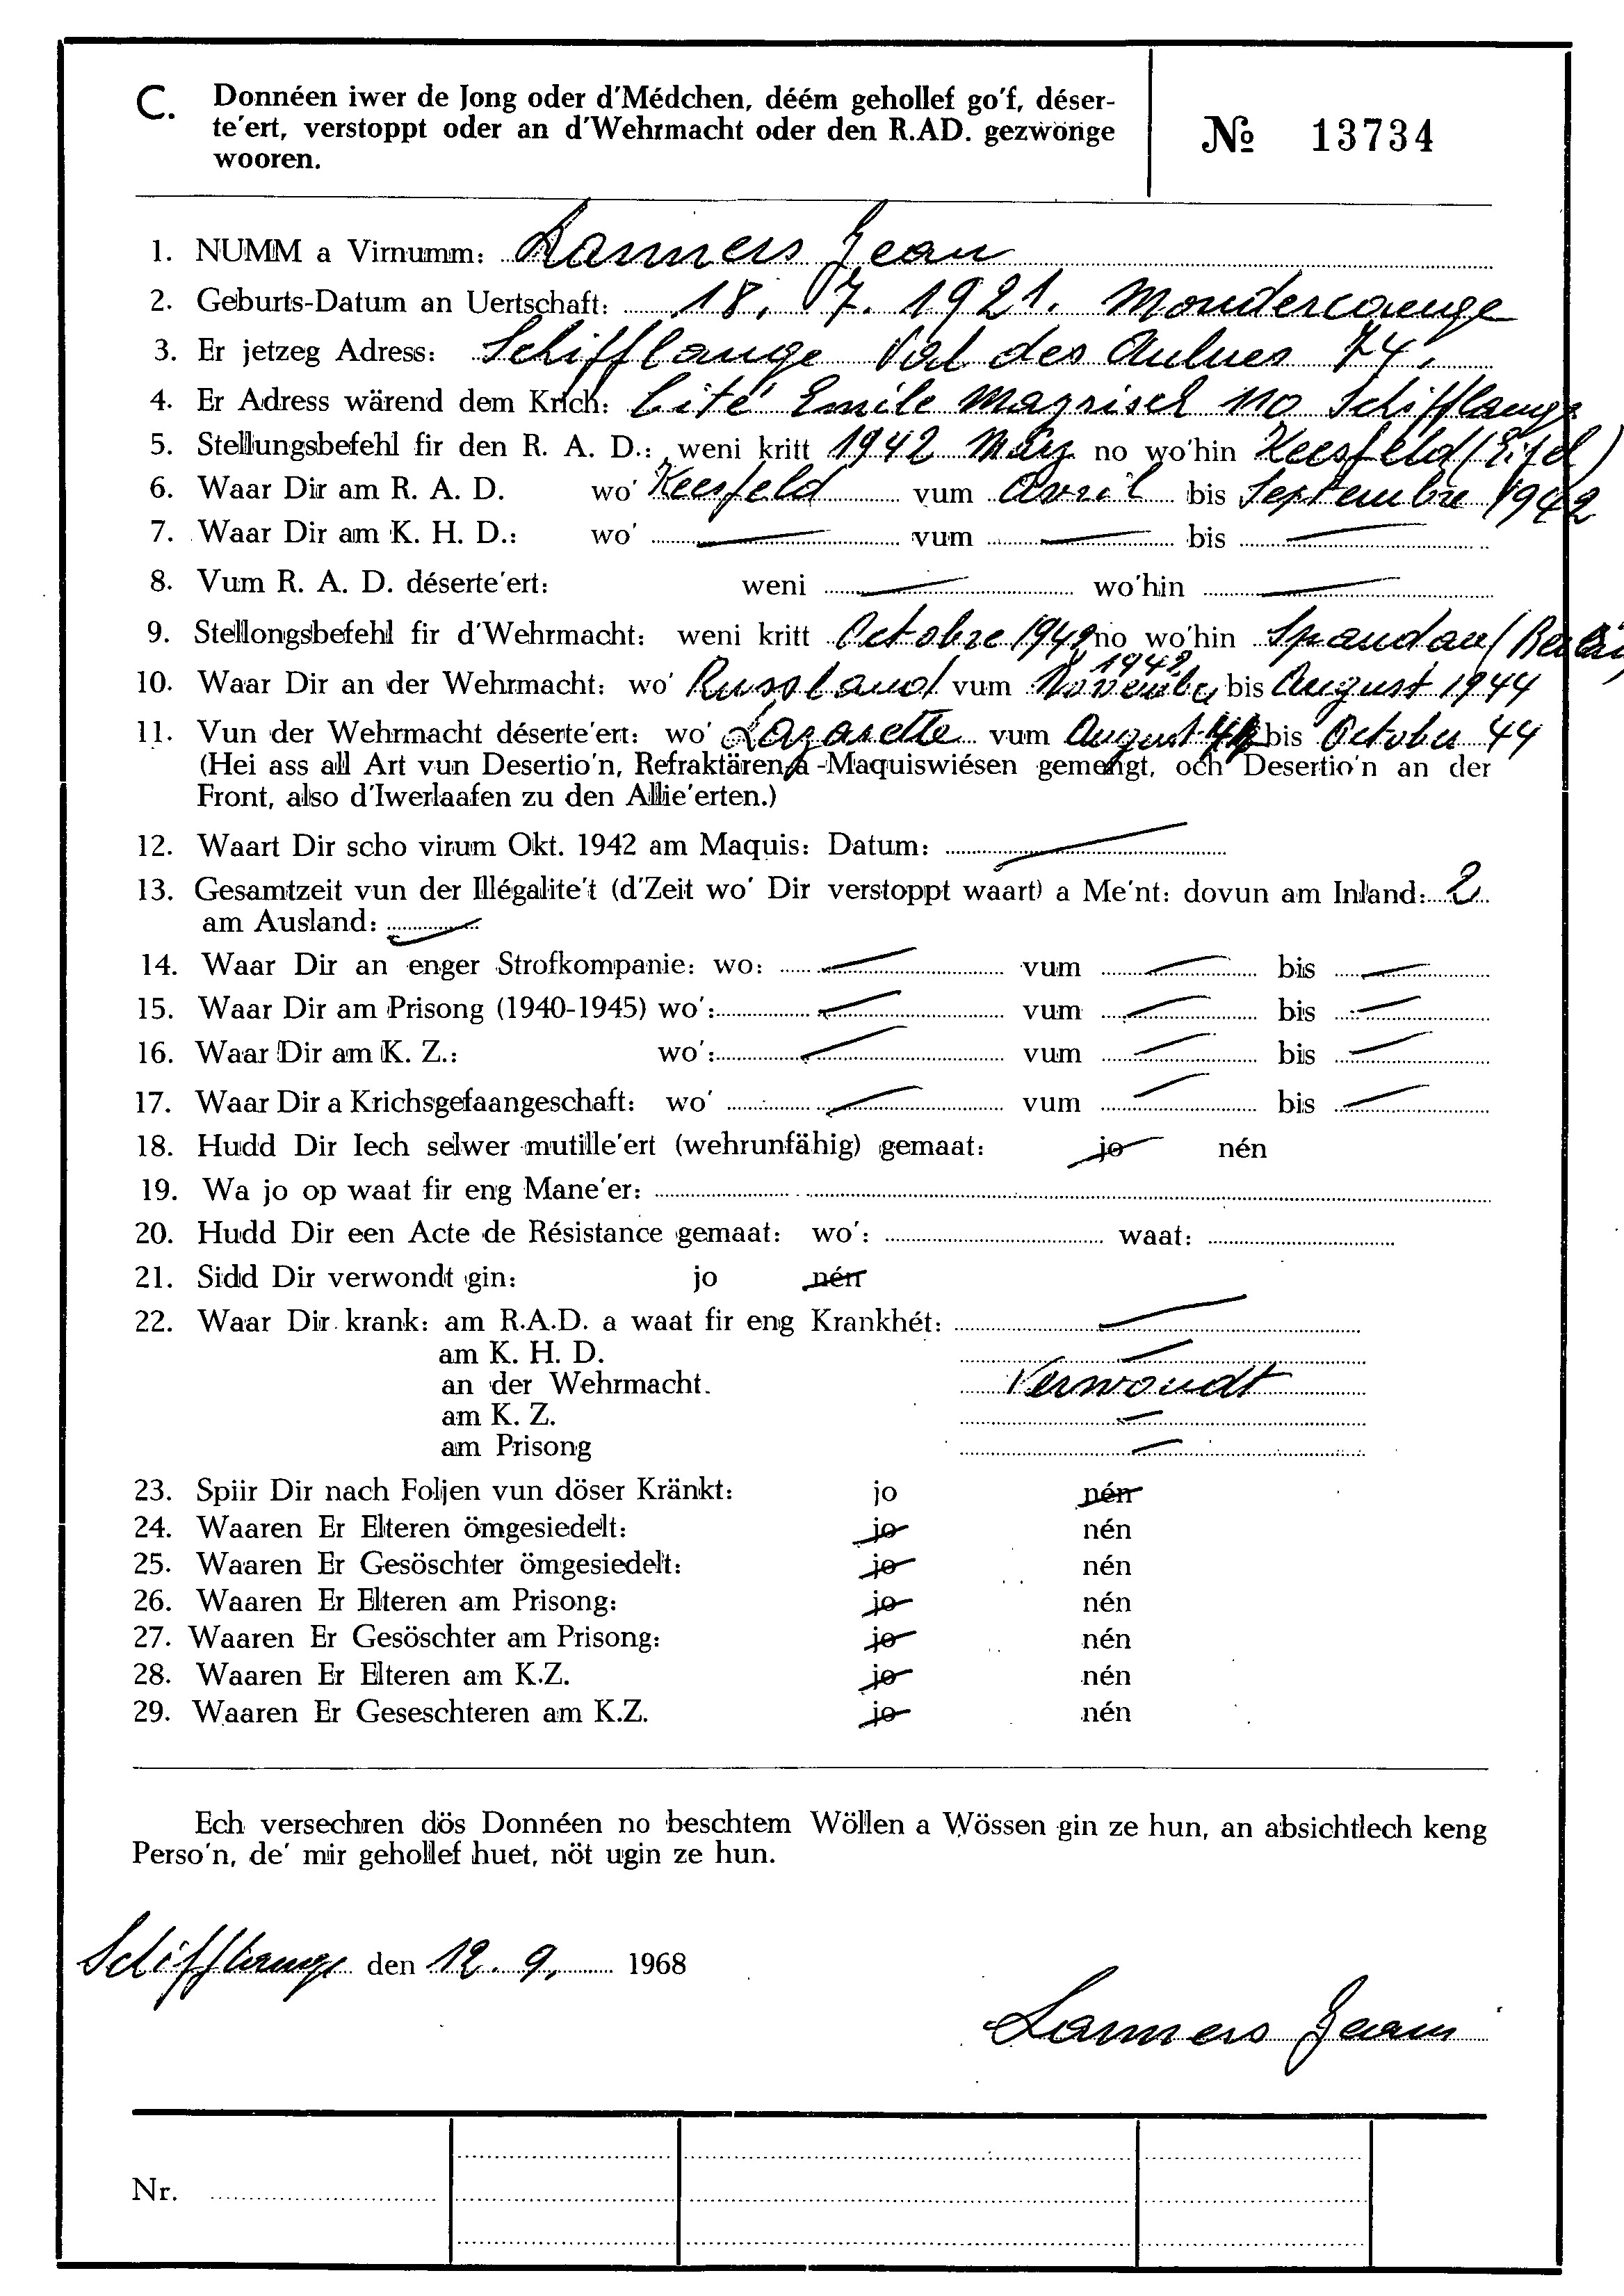 C. Donnéen iwer de Jong oder d'Médchen, déém gehollef go'f, déser-
te'ert, verstoppt oder an d'Wehrmacht oder den R.AD. gezwonge
wooren.
№ 13734
1. NUMM a Virnumm: Lanners Jean
2. Geburts-Datum an Uertschaft: 18. 7. 1921. Mondercange
3. Er jetzeg Adress: Schifflange Val des Aulnes 74.
4. Er Adress wärend dem Krich: Cité Emile Mayrisch 110 Schifflange
5. Stellungsbefehl fir den R. A. D.: weni kritt 1942 März no wo'hin Keesfeld (Eifel)
6. Waar Dir am R. A. D. wo' Keesfeld vum Avril bis Septembre 1942
7. Waar Dir am K. H. D.: wo' — vum — bis —
8. Vum R. A. D. déserte'ert: weni — wo'hin —
9. Stellongsbefehl fir d'Wehrmacht: weni kritt Octobre 1942 no wo'hin Spandau (Berlin)
10. Waar Dir an der Wehrmacht: wo' Russland vum November 1942 bis August 1944
11. Vun der Wehrmacht déserte'ert: wo' Lazarette vum August 44 bis October 44
(Hei ass all Art vun Desertio'n, Refraktären a -Maquiswiésen gemengt, och Desertio'n an der
Front, also d'Iwerlaafen zu den Allie'erten.)
12. Waart Dir scho virum Okt. 1942 am Maquis: Datum: —
13. Gesamtzeit vun der Illégalite't (d'Zeit wo' Dir verstoppt waart) a Me'nt: dovun am Inland: 2
am Ausland: —
14. Waar Dir an enger Strofkompanie: wo: — vum — bis —
15. Waar Dir am Prisong (1940-1945) wo': — vum — bis —
16. Waar Dir am K. Z.: wo': — vum — bis —
17. Waar Dir a Krichsgefaangeschaft: wo' — vum — bis —
18. Hudd Dir Iech selwer mutille'ert (wehrunfähig) gemaat: jo nén
19. Wa jo op waat fir eng Mane'er:
20. Hudd Dir een Acte de Résistance gemaat: wo': waat:
21. Sidd Dir verwondt gin: jo nén
22. Waar Dir krank: am R.A.D. a waat fir eng Krankhét: —
am K. H. D. —
an der Wehrmacht. Verwondt
am K. Z. —
am Prisong —
23. Spiir Dir nach Foljen vun döser Kränkt: jo nén
24. Waaren Er Elteren ömgesiedelt: jo nén
25. Waaren Er Gesöschter ömgesiedelt: jo nén
26. Waaren Er Elteren am Prisong: jo nén
27. Waaren Er Gesöschter am Prisong: jo nén
28. Waaren Er Elteren am K.Z. jo nén
29. Waaren Er Geseschteren am K.Z. jo nén
Ech versechren dös Donnéen no beschtem Wöllen a Wössen gin ze hun, an absichtlech keng
Perso'n, de' mir gehollef huet, nöt ugin ze hun.
Schifflange den 12. 9. 1968
Lanners Jean
Nr.